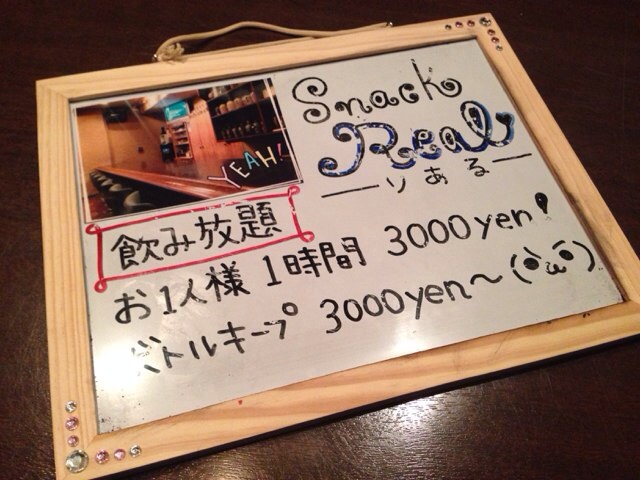 Snack
Real
ーりあるー
YEAH!
飲み放題
お1人様 1時間 3000yen!
ボトルキープ 3000yen〜(•ω•)